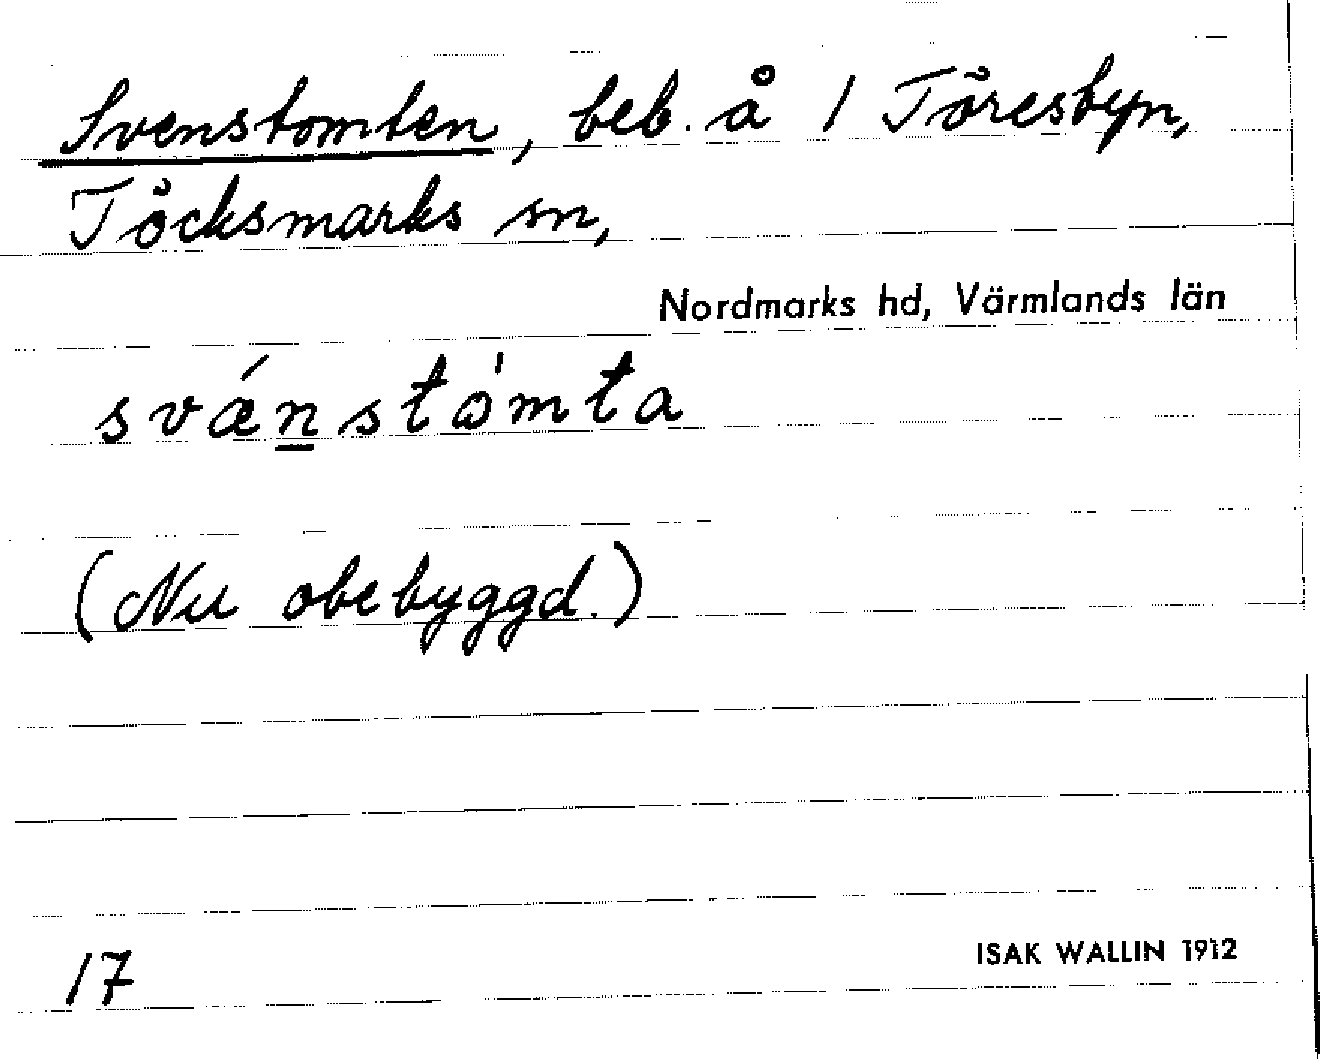 Svenstomten, beb. å 1 Töresbyn,
Töcksmarks sn,
Nordmarks hd, Värmlands län
svǽn̲stὼmta
(Nu obebyggd.)
17
ISAK WALLIN 1912